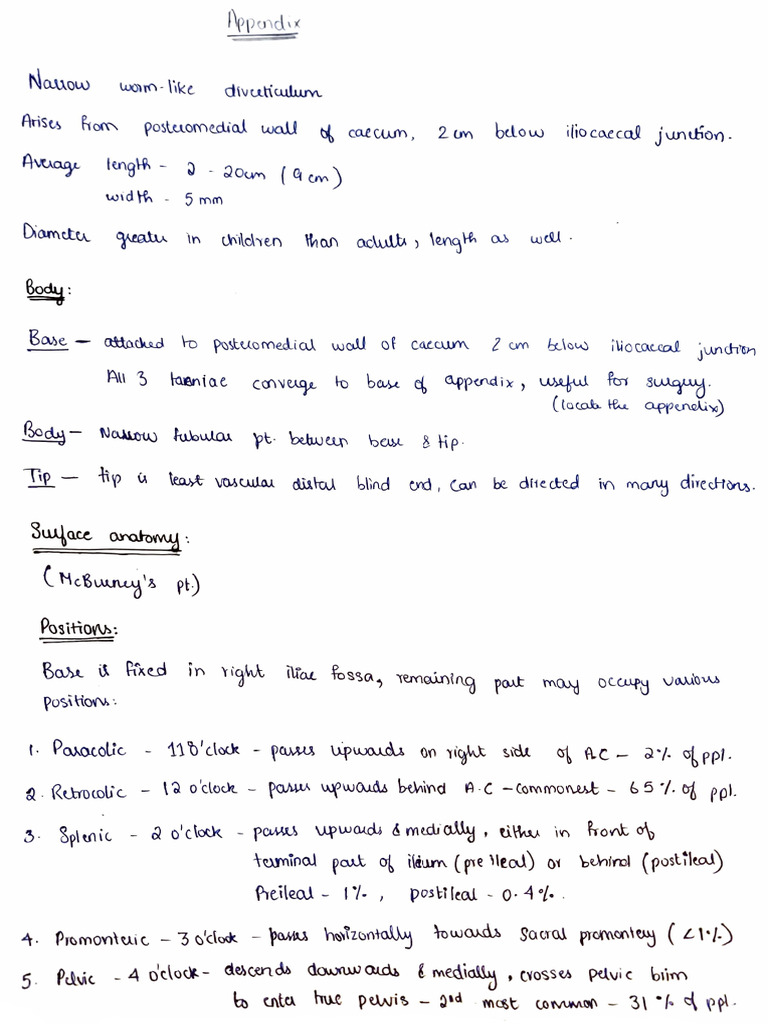 Appendix
Narrow worm-like diverticulum
Arises from posteromedial wall of caecum, 2 cm below iliocaecal junction.
Average length - 2 - 20cm (9 cm)
width - 5 mm
Diameter greater in children than adults, length as well.
Body:
Base - attached to posteromedial wall of caecum 2 cm below iliocaecal junction
All 3 taeniae converge to base of appendix, useful for surgery.
(locate the appendix)
Body - Narrow tubular pt. between base & tip.
Tip - tip is least vascular distal blind end, can be directed in many directions.
Surface anatomy:
(McBurney's pt.)
Positions:
Base is fixed in right iliac fossa, remaining part may occupy various
positions:
1. Paracolic - 11 O'clock - passes upwards on right side of A.C - 2% of ppl.
2. Retrocolic - 12 o'clock - passes upwards behind A.C - commonest - 65% of ppl.
3. Splenic - 2 o'clock - passes upwards & medially, either in front of
terminal part of ileum (preileal) or behind (postileal)
Preileal - 1%, postileal - 0.4%.
4. Promonteric - 3 o'clock - passes horizontally towards sacral promontery (<1%)
5. Pelvic - 4 o'clock - descends downwards & medially, crosses pelvic brim
to enter true pelvis - 2nd most common - 31% of ppl.